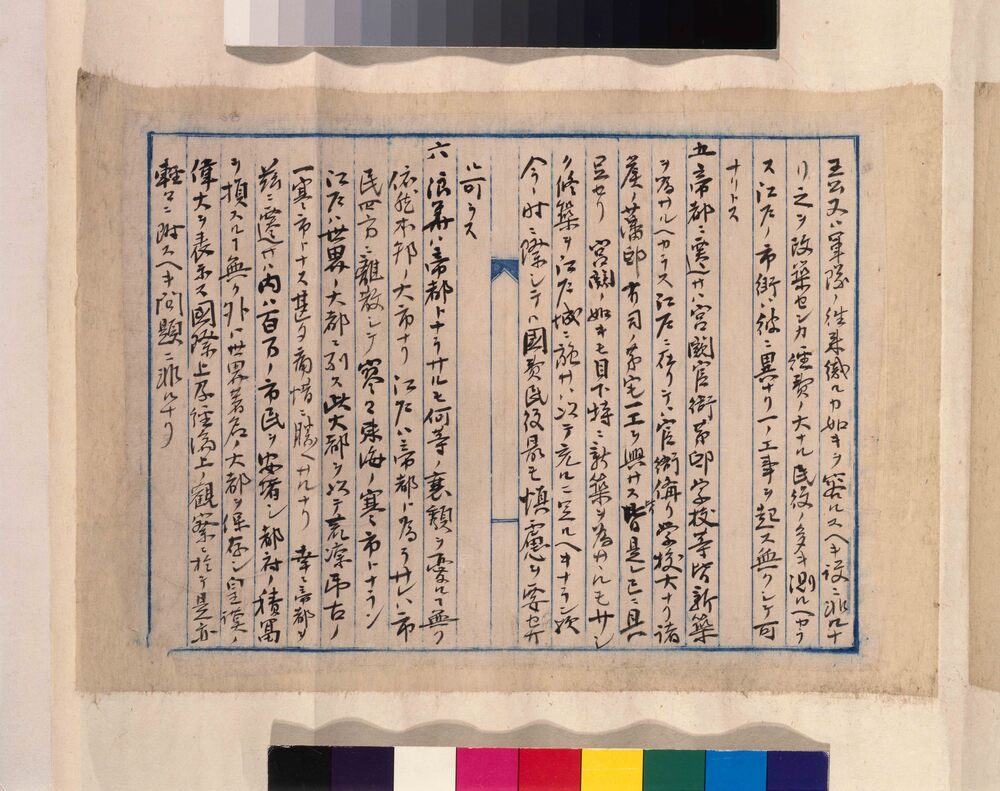 王公又ハ軍隊ノ往来織ルカ如キヲ容ルスヘキ設ニ非ルナ
リ之ヲ改築センカ経費ノ大ナル民役ノ多キ測ルヘカラ
ス江戸ノ市街ハ彼ニ異ナリ一ノ工事ヲ起ス無クシテ可
ナリトス
五帝都ニ遷サハ宮闕官衙第邸学校等皆新築
ヲ為サルヘカラス江戸ニ在リテハ官衙備リ学校大ナリ諸
侯ノ藩邸有司ノ第宅一工ヲ興サス皆是レ已ニ具
足セリ 宮闕ノ如キモ目下特ニ新築ヲ為サルモサシ
ク修築ヲ江戸城ニ施サハ以テ充ルニ足ルヘキナラン
今ノ時ニ際シテハ國費民役最モ慎慮ヲ要セサ
ル可ラス
六浪華ハ帝都トナラサルモ何等ノ衰頽ヲ憂ルコト無ク
依然本邦ノ大市ナリ 江戸ハ帝都ト為ラサレハ市
民四方ニ離散シテ 寥々東海ノ寒市トナラン
江戸ハ世界ノ大都ニ列ス此大都ヲ以テ荒涼弔古ノ
一寒市トナス甚タ痛惜ニ勝ヘサルナリ 幸ニ帝都ヲ
茲ニ遷サハ内ハ百万ノ市民ヲ安堵シ都府ノ積
ヲ損スルコト無ク外ハ世界著名ノ大都ヲ保存シ皇謨ノ
偉大ヲ表示ス國際上及経済上ノ観察ニ於テ是亦
軽々ニ附スヘキ問題ニ非ルナリ